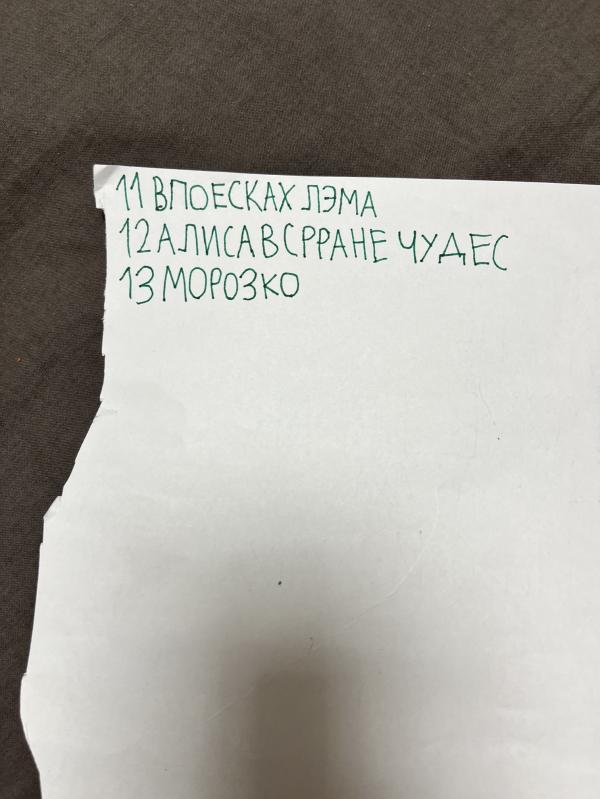 11 ВПОЕСКАХ ЛЭМА
12 АЛИСА В СРРАНЕ ЧУДЕС
13 МОРОЗКО